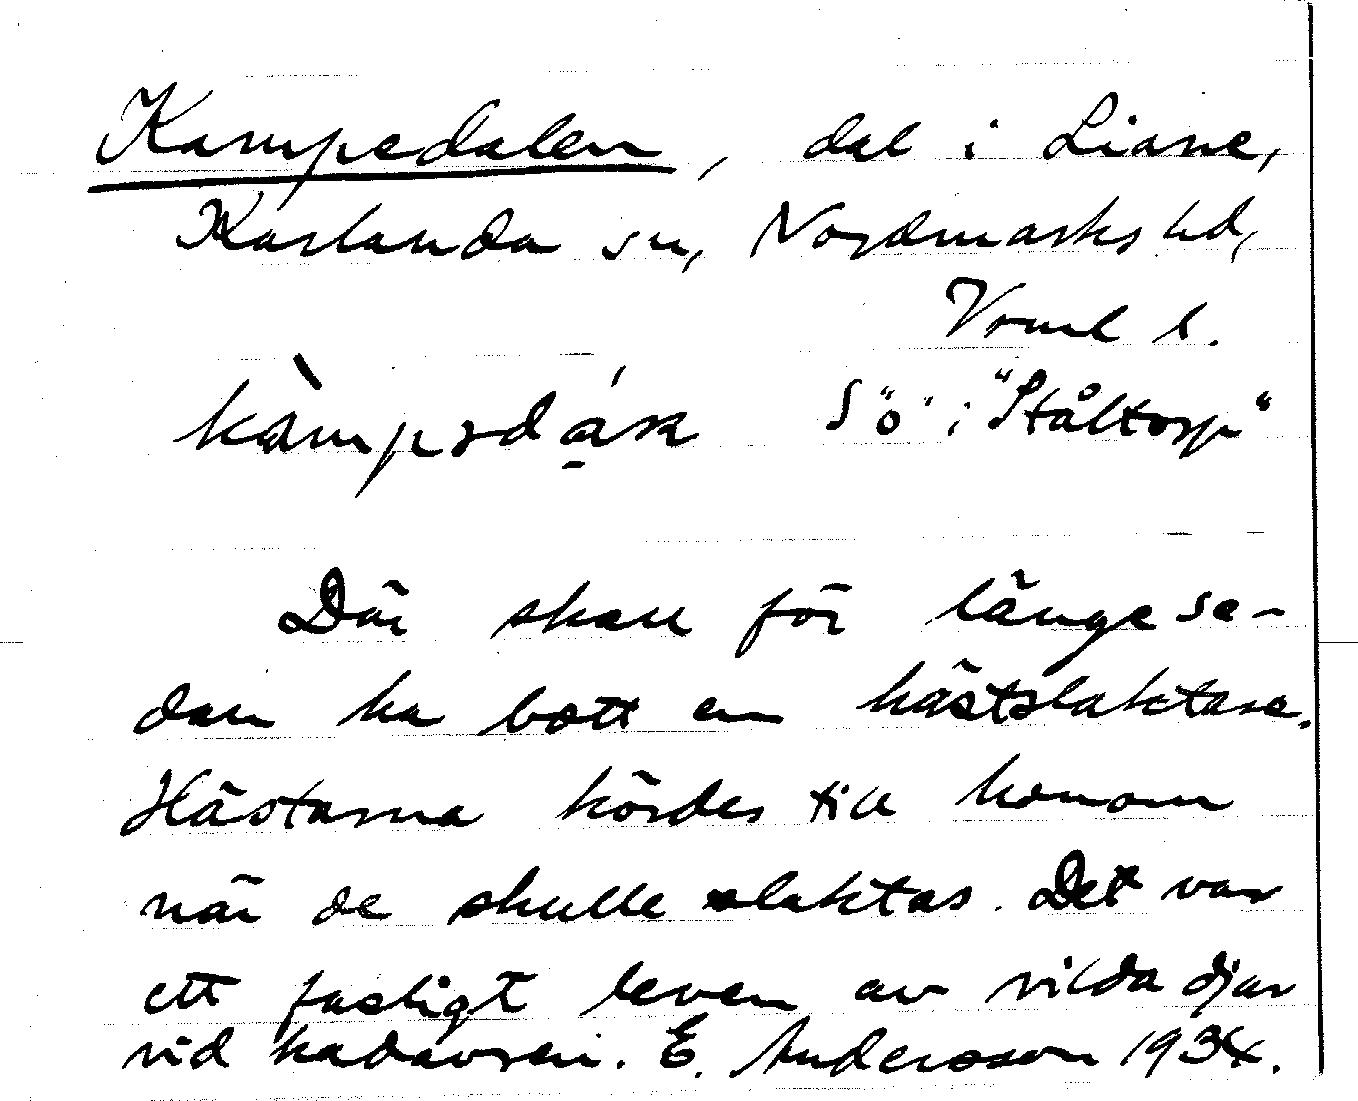 Kampedalen, dal i Liane,
Karlanda sn, Nordmarks hd,
Vrml l.
kàmpədáɽa Sö i "Ståltorp"
Där skall för länge se-
dan ha bott en hästslaktare.
Hästarna kördes till honom
när de skulle slaktas. Det var
ett fasligt leven av vilda djur
vid kadavren. E. Andersson 1934.